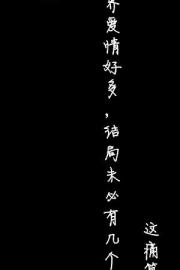 界爱情好多，结局未必有几个
这痛算